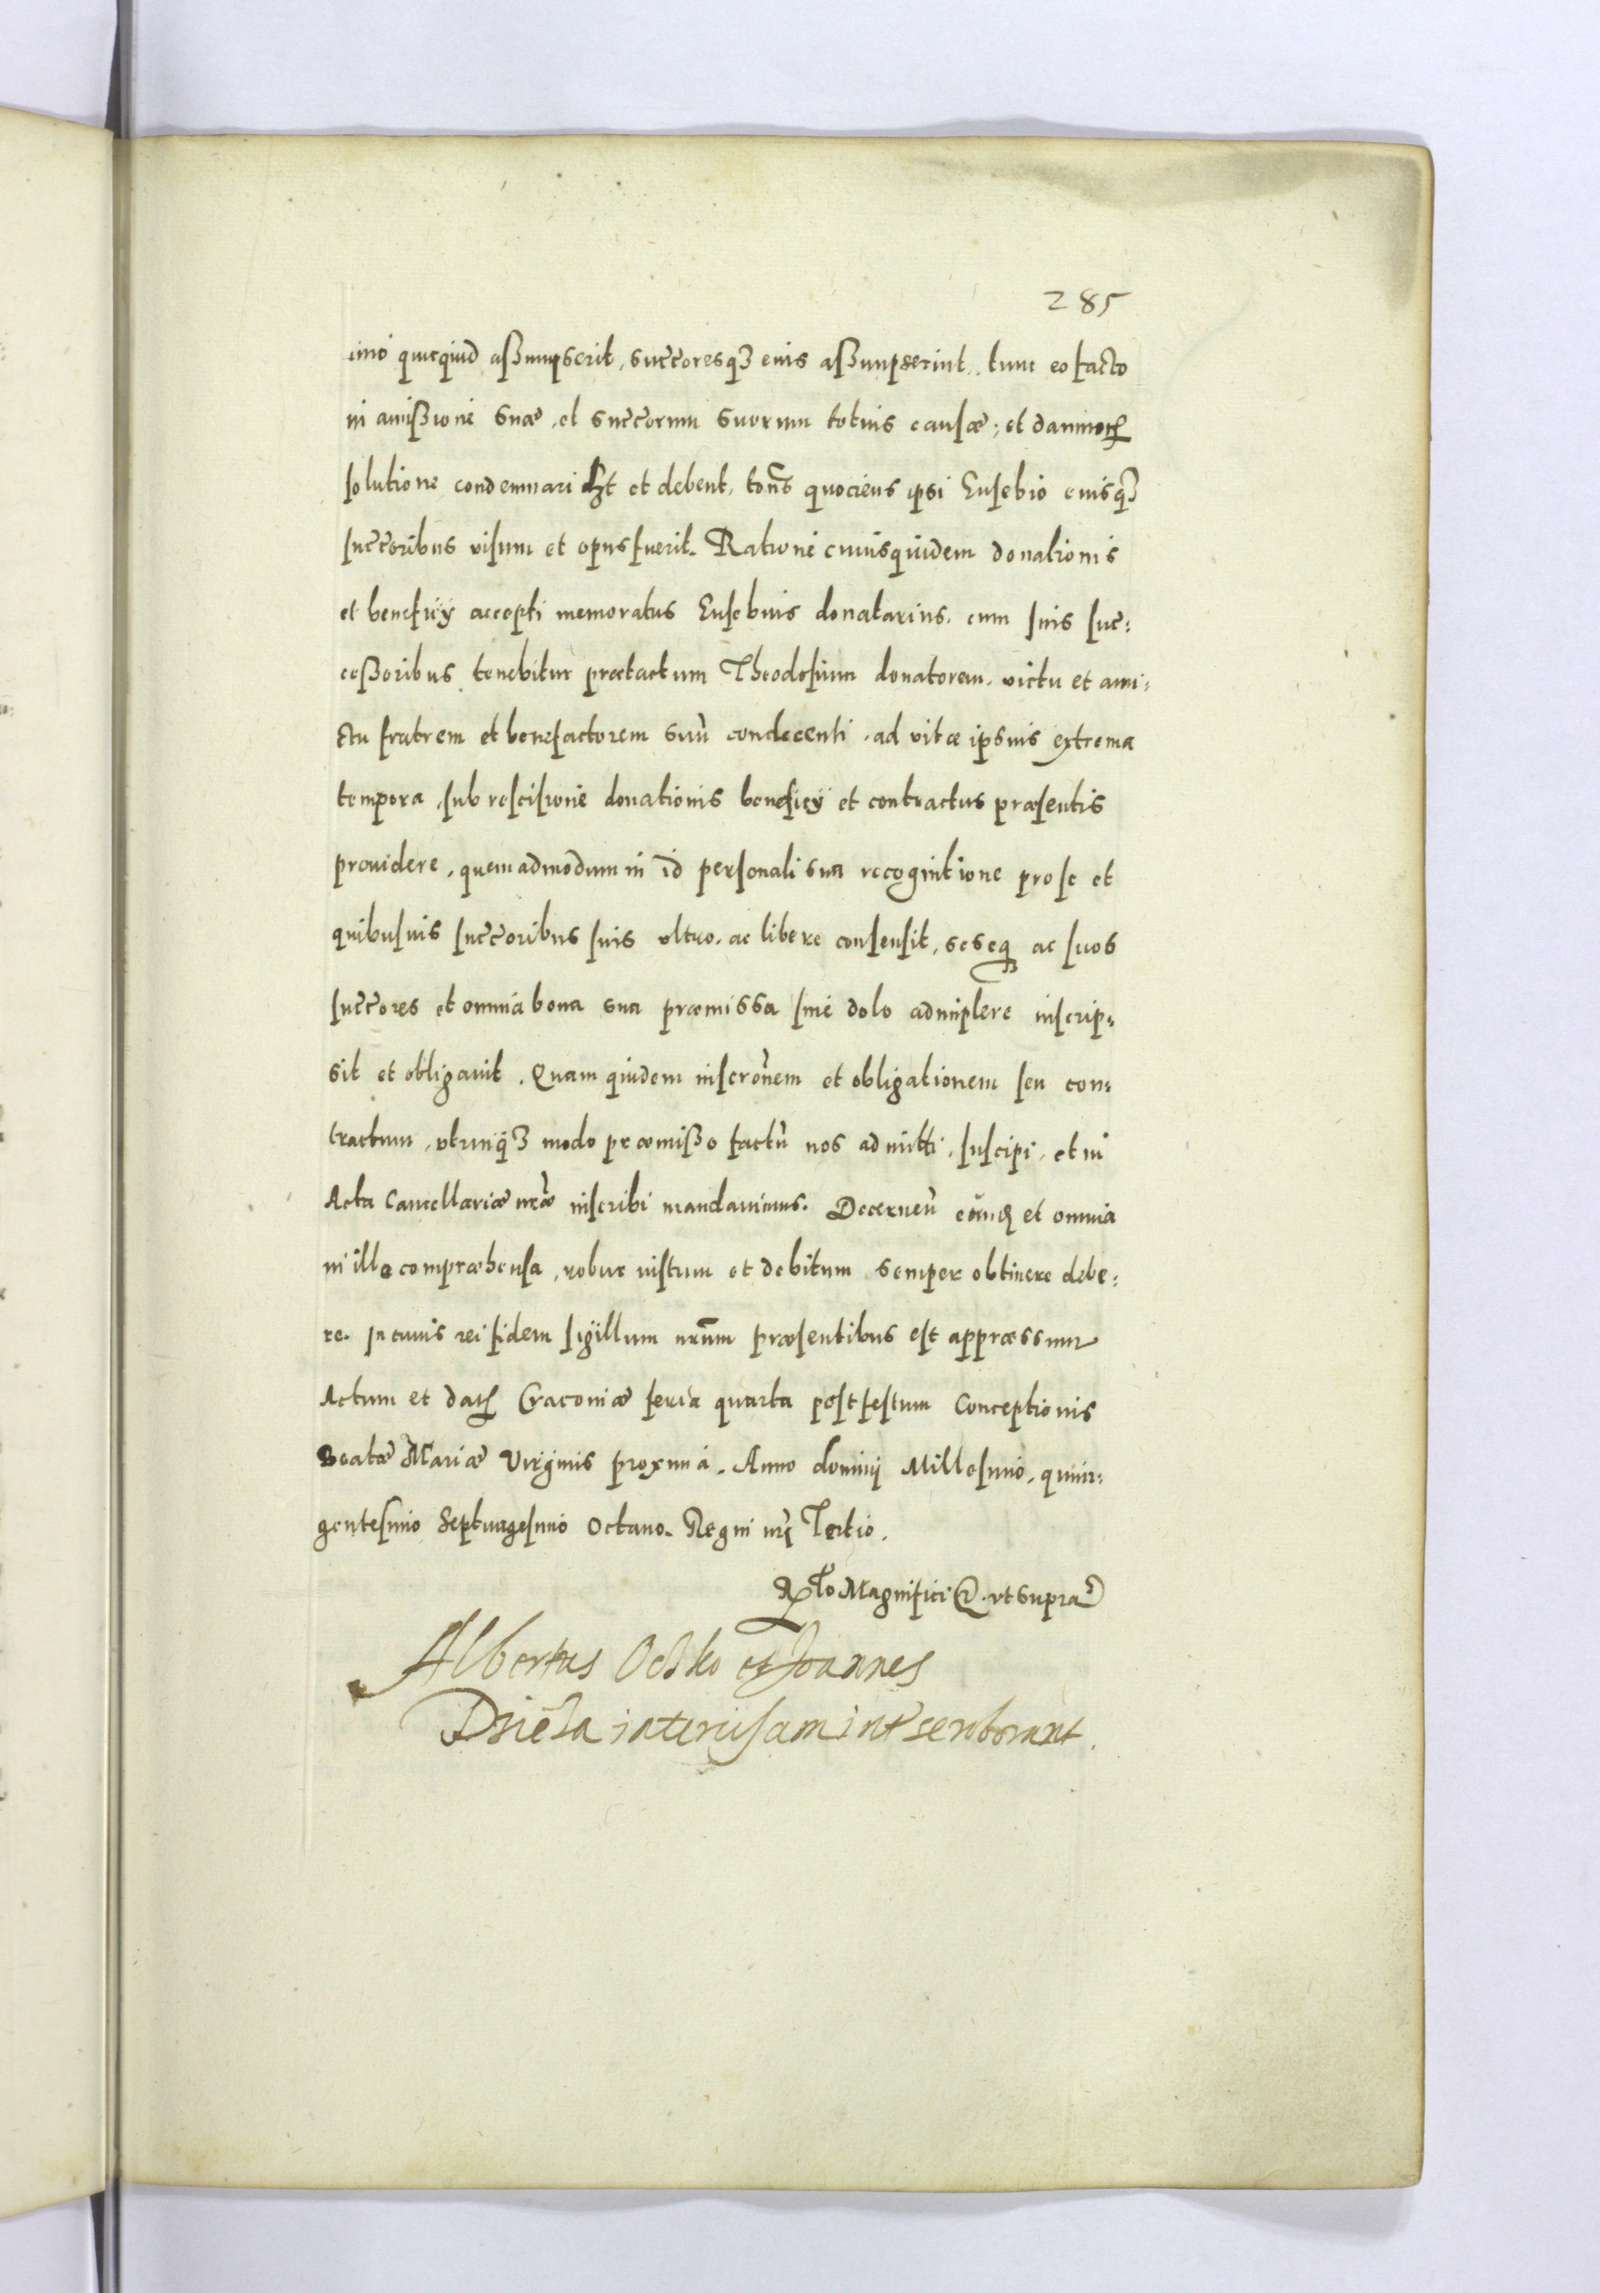 285
imo quicquid assumpserit, succoresq3 eius assumpserint, tunc eo facto
in amissione suæ, et succorum suorum totius causæ, et damnor
solutione condemnari et debent, quociens ipsi Eusebio eiusq3
succoribus visum et opus fuerit. Ratione cuiusquidem donationis
et beneficÿ accepti memoratus Eusebius donatarius, cum suis suc:
cessoribus tenebitur prætactum Theodosium donatorem, victu et ami:
ctu fratrem et benefactorem suū condecenti, ad vitæ ipsius extrema
tempora, sub rescisione donationis beneficÿ et contractus præsentis
prouidere, quemadmodum in id personali sua recognitione pro se et
quibusuis succoribus suis vltro, ac libere consensit, seseq3 ac suos
succores et omnia bona sua præmissa sine dolo adimplere inscrip:
sit et obligauit. Quam quidem inscrōnem et obligationem seu con:
tractum, vtrinq3 modo præmisso factū nos admitti, suscipi, et in
Acta Cancellariæ nræ inscribi mandauimus. Decernen et omnia
in illo compræhensa, robur iustum et debitum semper obtinere debe:
re. In cuius rei fidem sigillum nrum præsentibus est appræssum
Actum et dat Cracouiæ feria quarta post festum Conceptionis
Beatæ Mariæ Virginis proxima. Anno dominj Millesimo, quin:
gentesimo Septuagesimo Octauo. Regni nrj Tertio.
Rlo Magnifici &. vt supra
Albertus Ocsko et Joannes